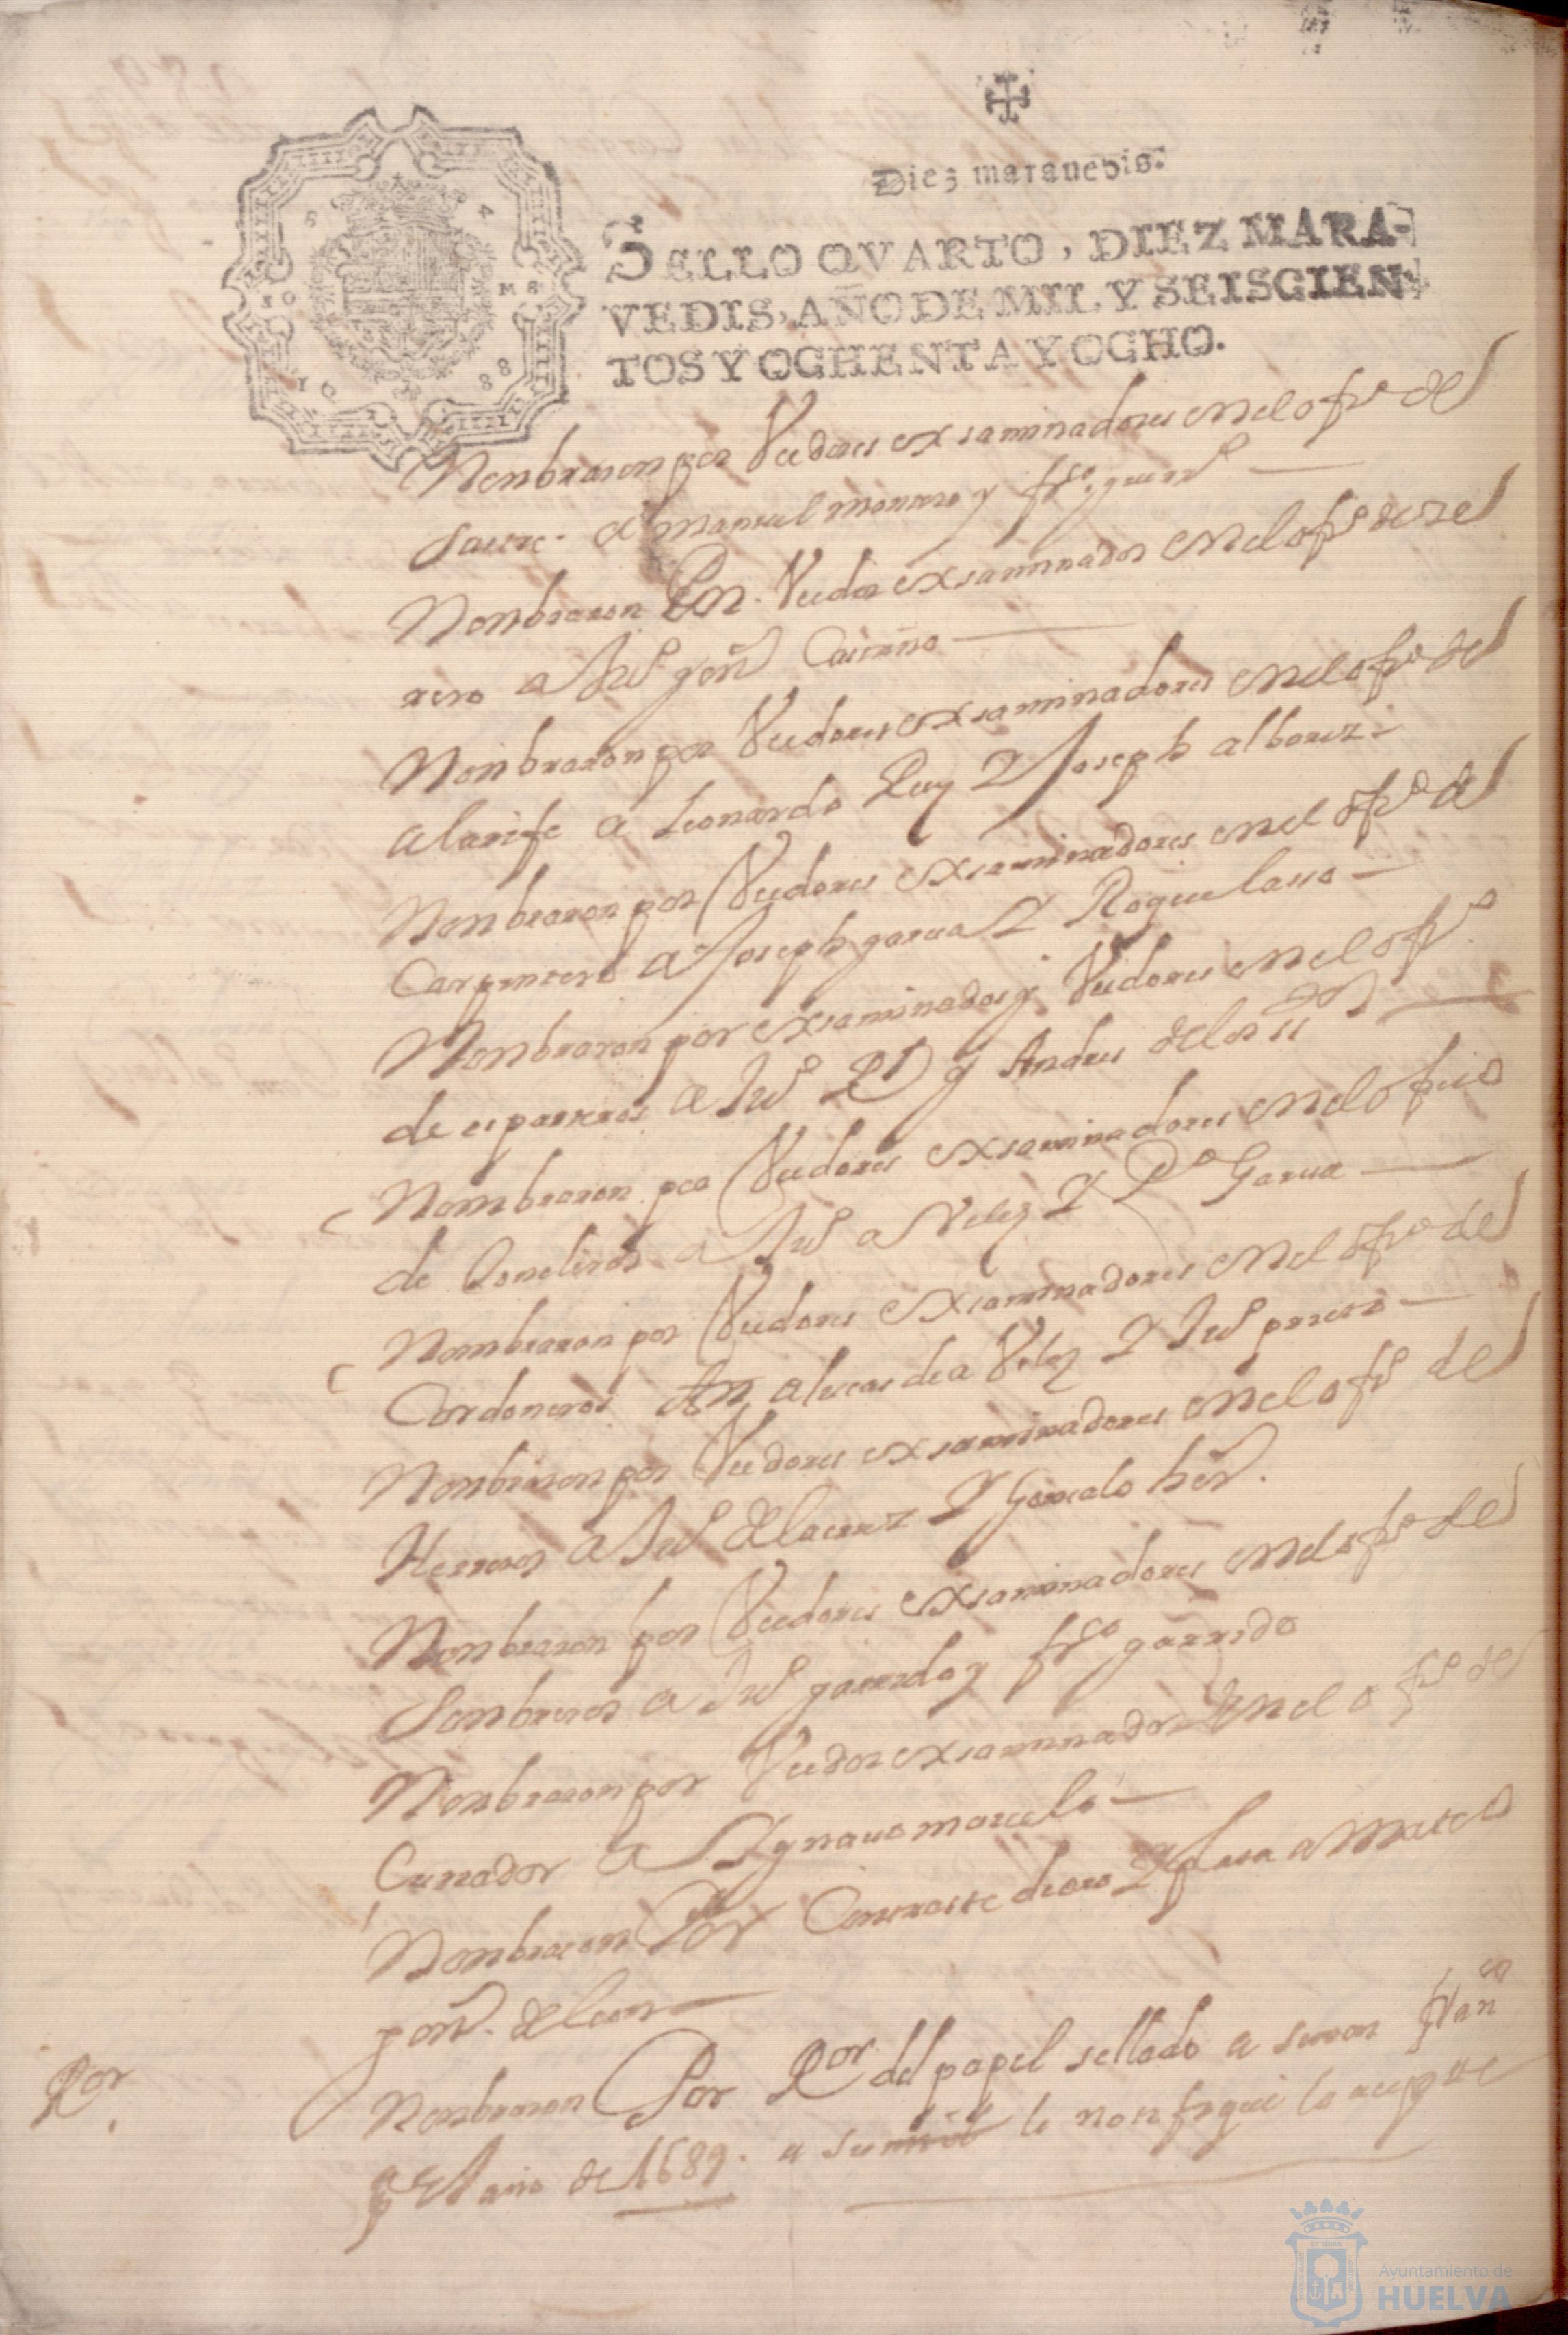 Diez maravedis.
SELLO QVARTO, DIEZ MARA-
VEDIS, AÑO DE MIL Y SEISCIEN-
TOS Y OCHENTA Y OCHO.
10 Ms
16 88
Nonbraron por Veedores exsaminadores enel ofº del
Sastre. a manuel y frco
Nonbraron Por Veedor exsaminador enel ofº de
a Juº gonz Castaño
Nonbraron por Veedores exsaminadores enel ofº del
alarife a Leonardo Ruiz Y Joseph albarez
Nonbraron por Veedores exsaminadores enel ofº del
Carpintero a Joseph garcia Y Roque lasso
Nonbraron por exsaminadores y Veedores enel ofº
de esparteros a Juº y Andres delos
Nombraron por Veedores exsaminadores enel ofiçio
de toneleros a Juº a Velez Y Pº Garcia
Nombraron por Veedores exsaminadores enel ofº del
Cordoneros a lucas de a Velez Y Juº prieto
Nonbraron por Veedores exsaminadores enel ofº del
Herreros a Juº de la cruz Y Goncalo her.
Nonbraron por Veedores exsaminadores enel ofº del
Sonbreros a Juº garrido y frco garrido
Nonbraron por Veedor exsaminador enel ofº de
Curtador a Ygnacio marcelo
Nonbraron Por Contraste de oro Y plata a Mateo
gonz. de leon
Ror
Nonbraron Por Ror del papel sellado a simon
año de 1689. a su le notifique lo acepte
Ayuntamiento de
HUELVA